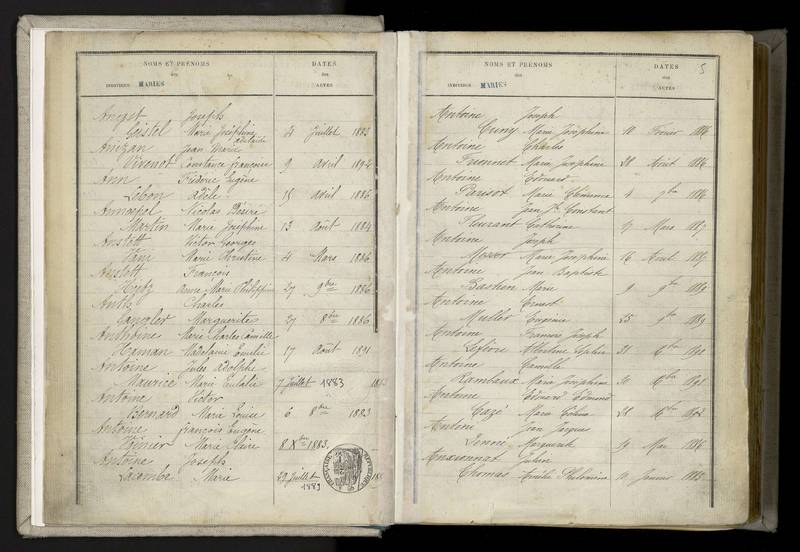 NOMS ET PRÉNOMS
des
INDIVIDUS MARIÉS
DATES
des
ACTES
Anizet Joseph
Geistel Marie Joséphine Adélaïde 4 Juillet 1883
Anizan Jean Marie
Virenot Constance françoise 9 avril 1894
Ann Frédéric Eugène
Lebon Adèle 15 avril 1886
Annappel Nicolas Désiré
Martin Marie Joséphine 13 Août 1884
Anstett Victor Georges
Marie Christine 4 Mars 1886
Anstett François
Anne Marie Philippine 27 9bre 1886
Anth Charles
Gangler Marguerite 27 8bre 1886
Anthoine Marie Charles Camille
Haman Madelaine Emélie 17 Août 1891
Antoine Jules Adolphe
Maurice Marie Eulalie 7 Juillet 1883
Antoine Victor
Bernard Marie Louise 6 8bre 1883
Antoine François Eugène
Marie Claire 8 Xbre 1883
Antoine Joseph
Lacombe Marie 29 Juillet 1889
5
NOMS ET PRÉNOMS
des
INDIVIDUS MARIÉS
DATES
des
ACTES
Antoine Joseph
Cuny Marie Joséphine 10 Février 1886
Antoine Charles
Marie Joséphine 28 Août 1886
Antoine Edouard
Parisot Marie Clémence 4 7bre 1886
Antoine Jean Bte Constant
Fleurant Catherine Mars 1887
Antoine Joseph
Marie Joséphine 16 Août 1887
Antoine Jean Baptiste
Bastien Marie 9 9bre 1889
Antoine Ernest
Muller Eugénie 25 9bre 1889
Antoine François Joseph
Lefèvre Sophie 21
Antoine Camille
Rambaux Marie Joséphine
Antoine Edouard Edmond
Cazé Marie 28
Antoine Jean Jacques
Marguerite 19 Mai 1886
Anxionnat Julien
Thomas Emilie Philomène 10 Janvier 1883